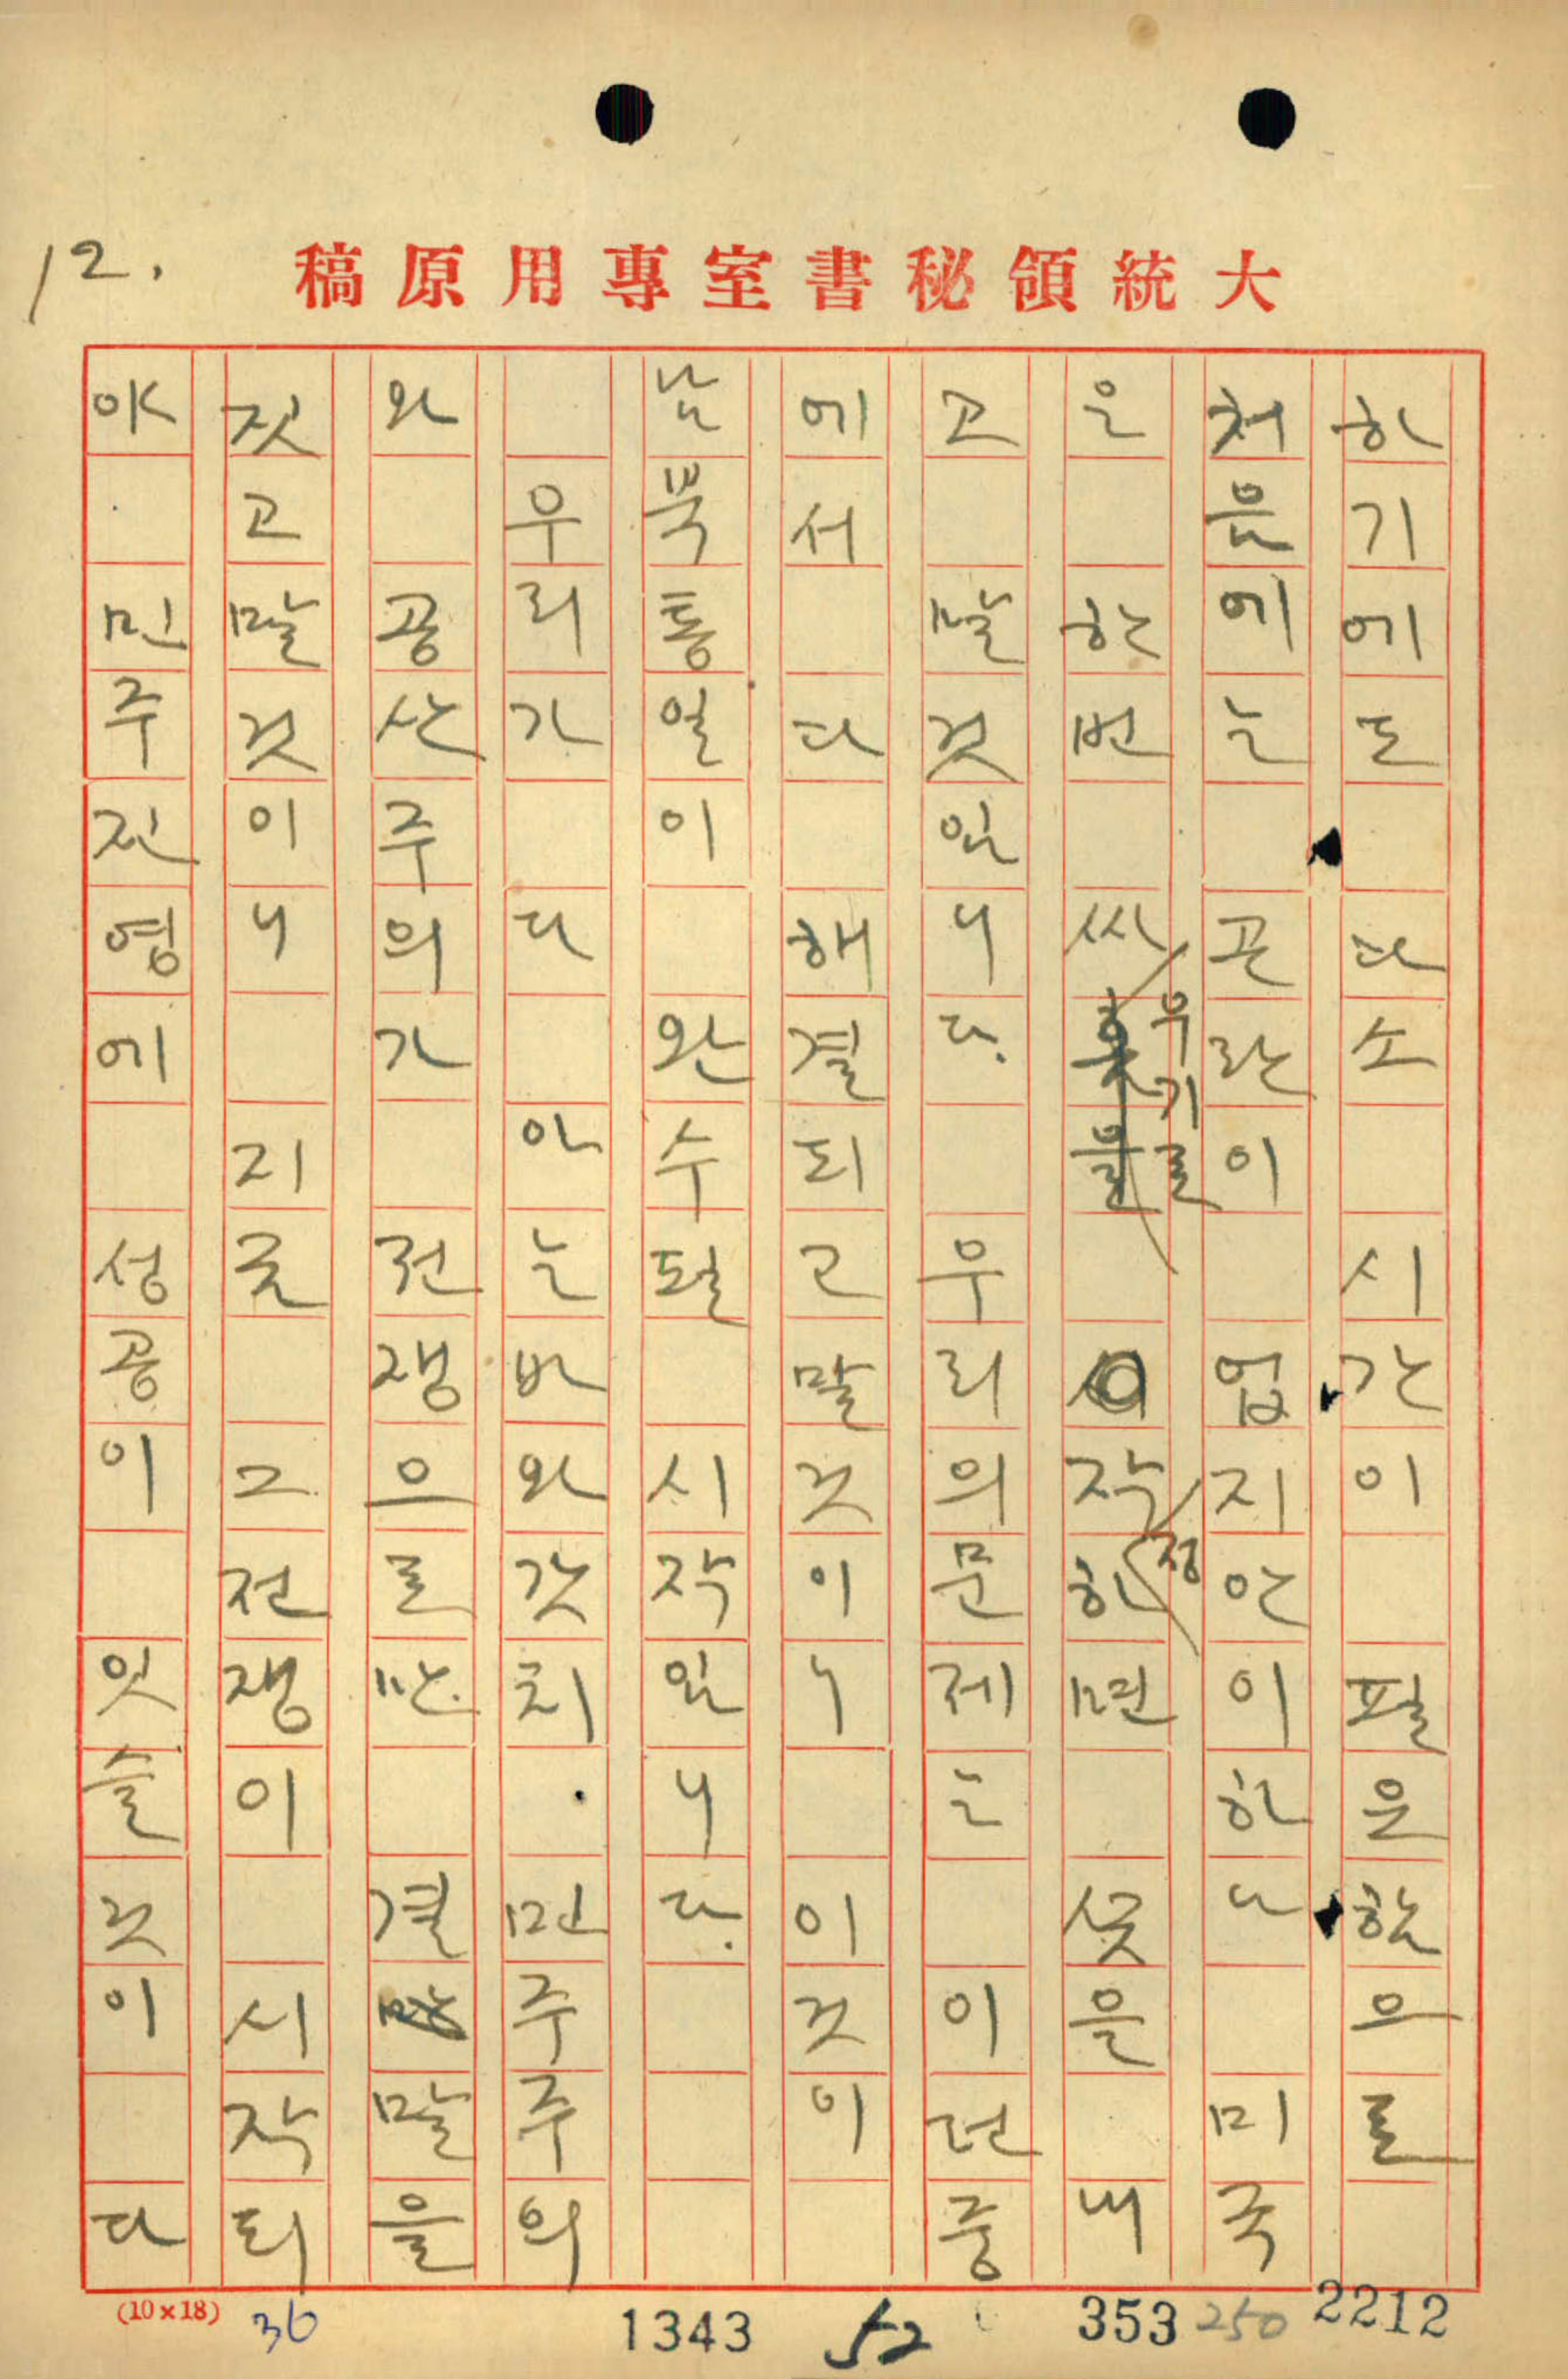 12.
大統領秘書室專用原稿
하기에도 다소 시간이 필요함으로
처음에는 곤란이 업지안이하나 미국
은 한번 싸우기로 작정하면 끗을 내
고 말것임니다. 우리의문제는 이런중
에서 다 해결되고말것이니 이것이
남북통일이 완수될 시작임니다.
우리가 다 아는바와갓치 민주주의
와 공산주의가 전쟁으로만 결말을
짓고말것이니 지금 그전쟁이 시작되
야 민주진영에 성공이 잇슬것이다
(10×18)
36
1343
52
353
250
2212